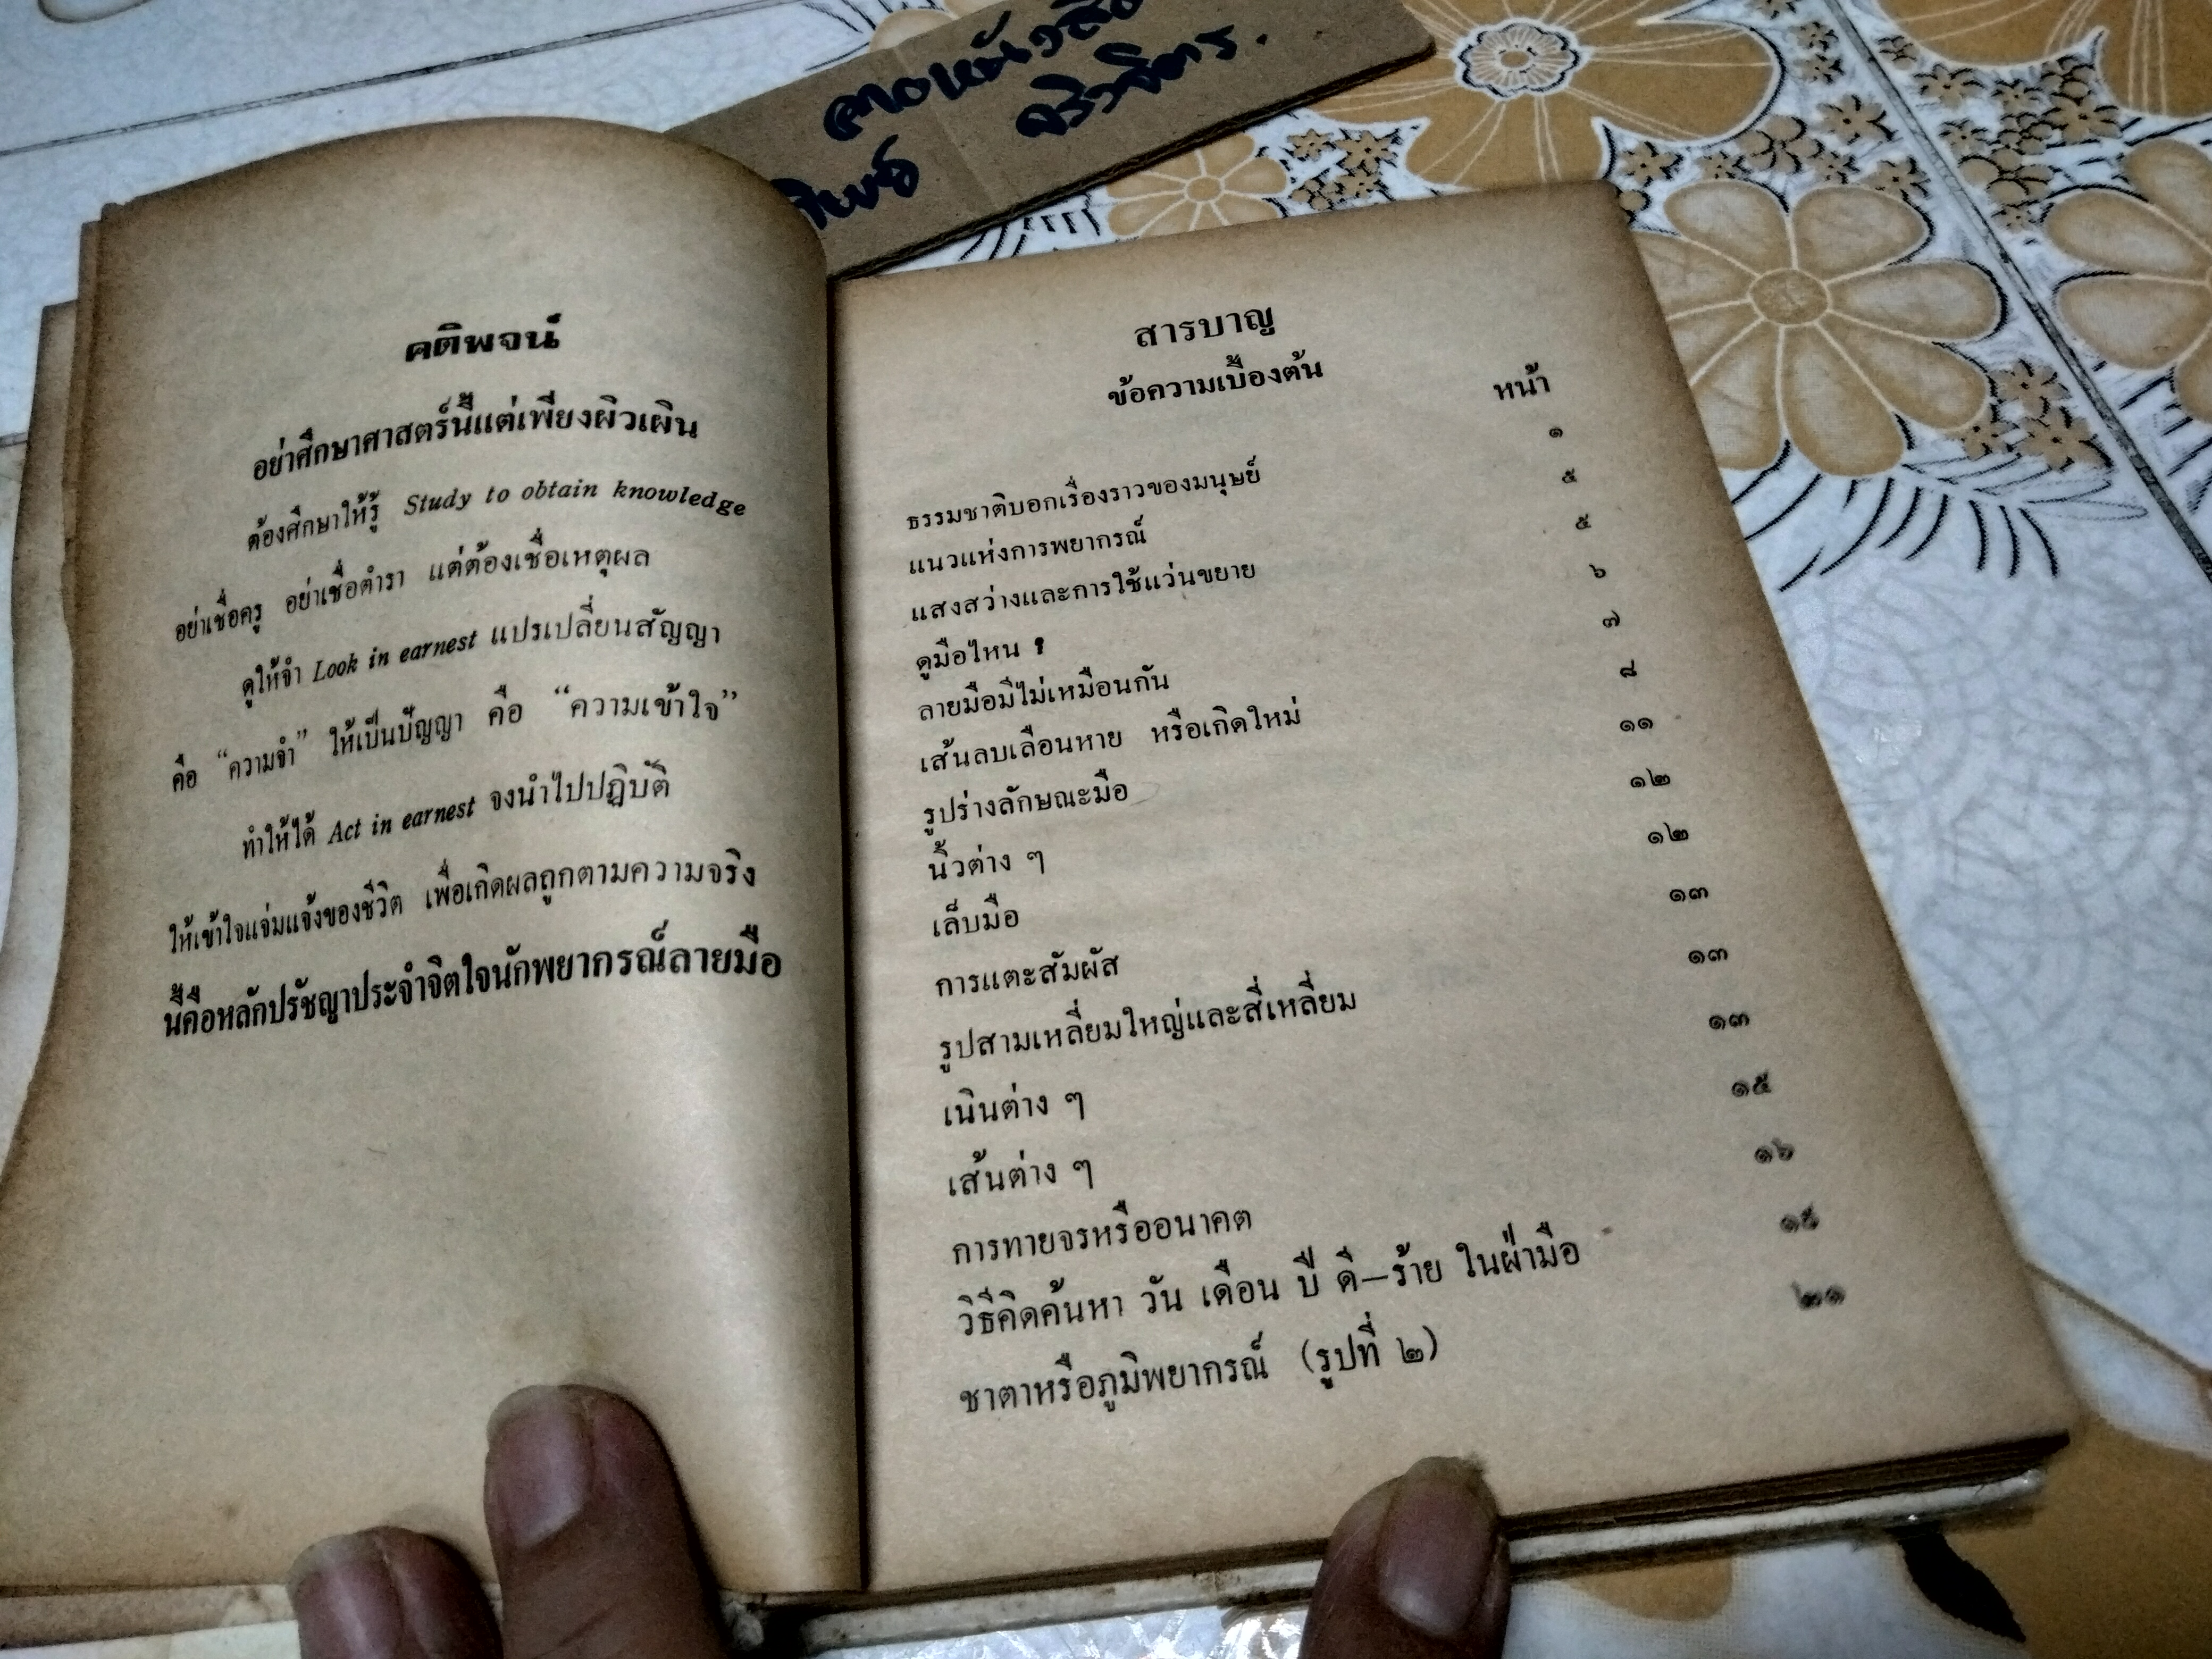 คติพจน์
อย่าศึกษาศาสตร์นี้แต่เพียงผิวเผิน
ต้องศึกษาให้รู้ Study to obtain knowledge
อย่าเชื่อครู อย่าเชื่อตำรา แต่ต้องเชื่อเหตุผล
ดูให้จำ Look in earnest แปรเปลี่ยนสัญญา
คือ “ความจำ” ให้เป็นปัญญา คือ “ความเข้าใจ”
ทำให้ได้ Act in earnest จงนำไปปฏิบัติ
ให้เข้าใจแจ่มแจ้งของชีวิต เพื่อเกิดผลถูกตามความจริง
นี้คือหลักปรัชญาประจำจิตใจนักพยากรณ์ลายมือ
สารบาญ
ข้อความเบื้องต้น
หน้า
ธรรมชาติบอกเรื่องราวของมนุษย์ ๑
แนวแห่งการพยากรณ์ ๕
แสงสว่างและการใช้แว่นขยาย ๕
ดูมือไหน ? ๖
ลายมือมีไม่เหมือนกัน ๗
เส้นลบเลือนหาย หรือเกิดใหม่ ๘
รูปร่างลักษณะมือ ๑๑
นิ้วต่าง ๆ ๑๒
เล็บมือ ๑๒
การแตะสัมผัส ๑๓
รูปสามเหลี่ยมใหญ่และสี่เหลี่ยม ๑๓
เนินต่าง ๆ ๑๓
เส้นต่าง ๆ ๑๕
การทายจรหรืออนาคต ๑๖
วิธีคิดค้นหา วัน เดือน ปี ดี—ร้าย ในฝ่ามือ
ชาตาหรือภูมิพยากรณ์ (รูปที่ ๒) ๒๑